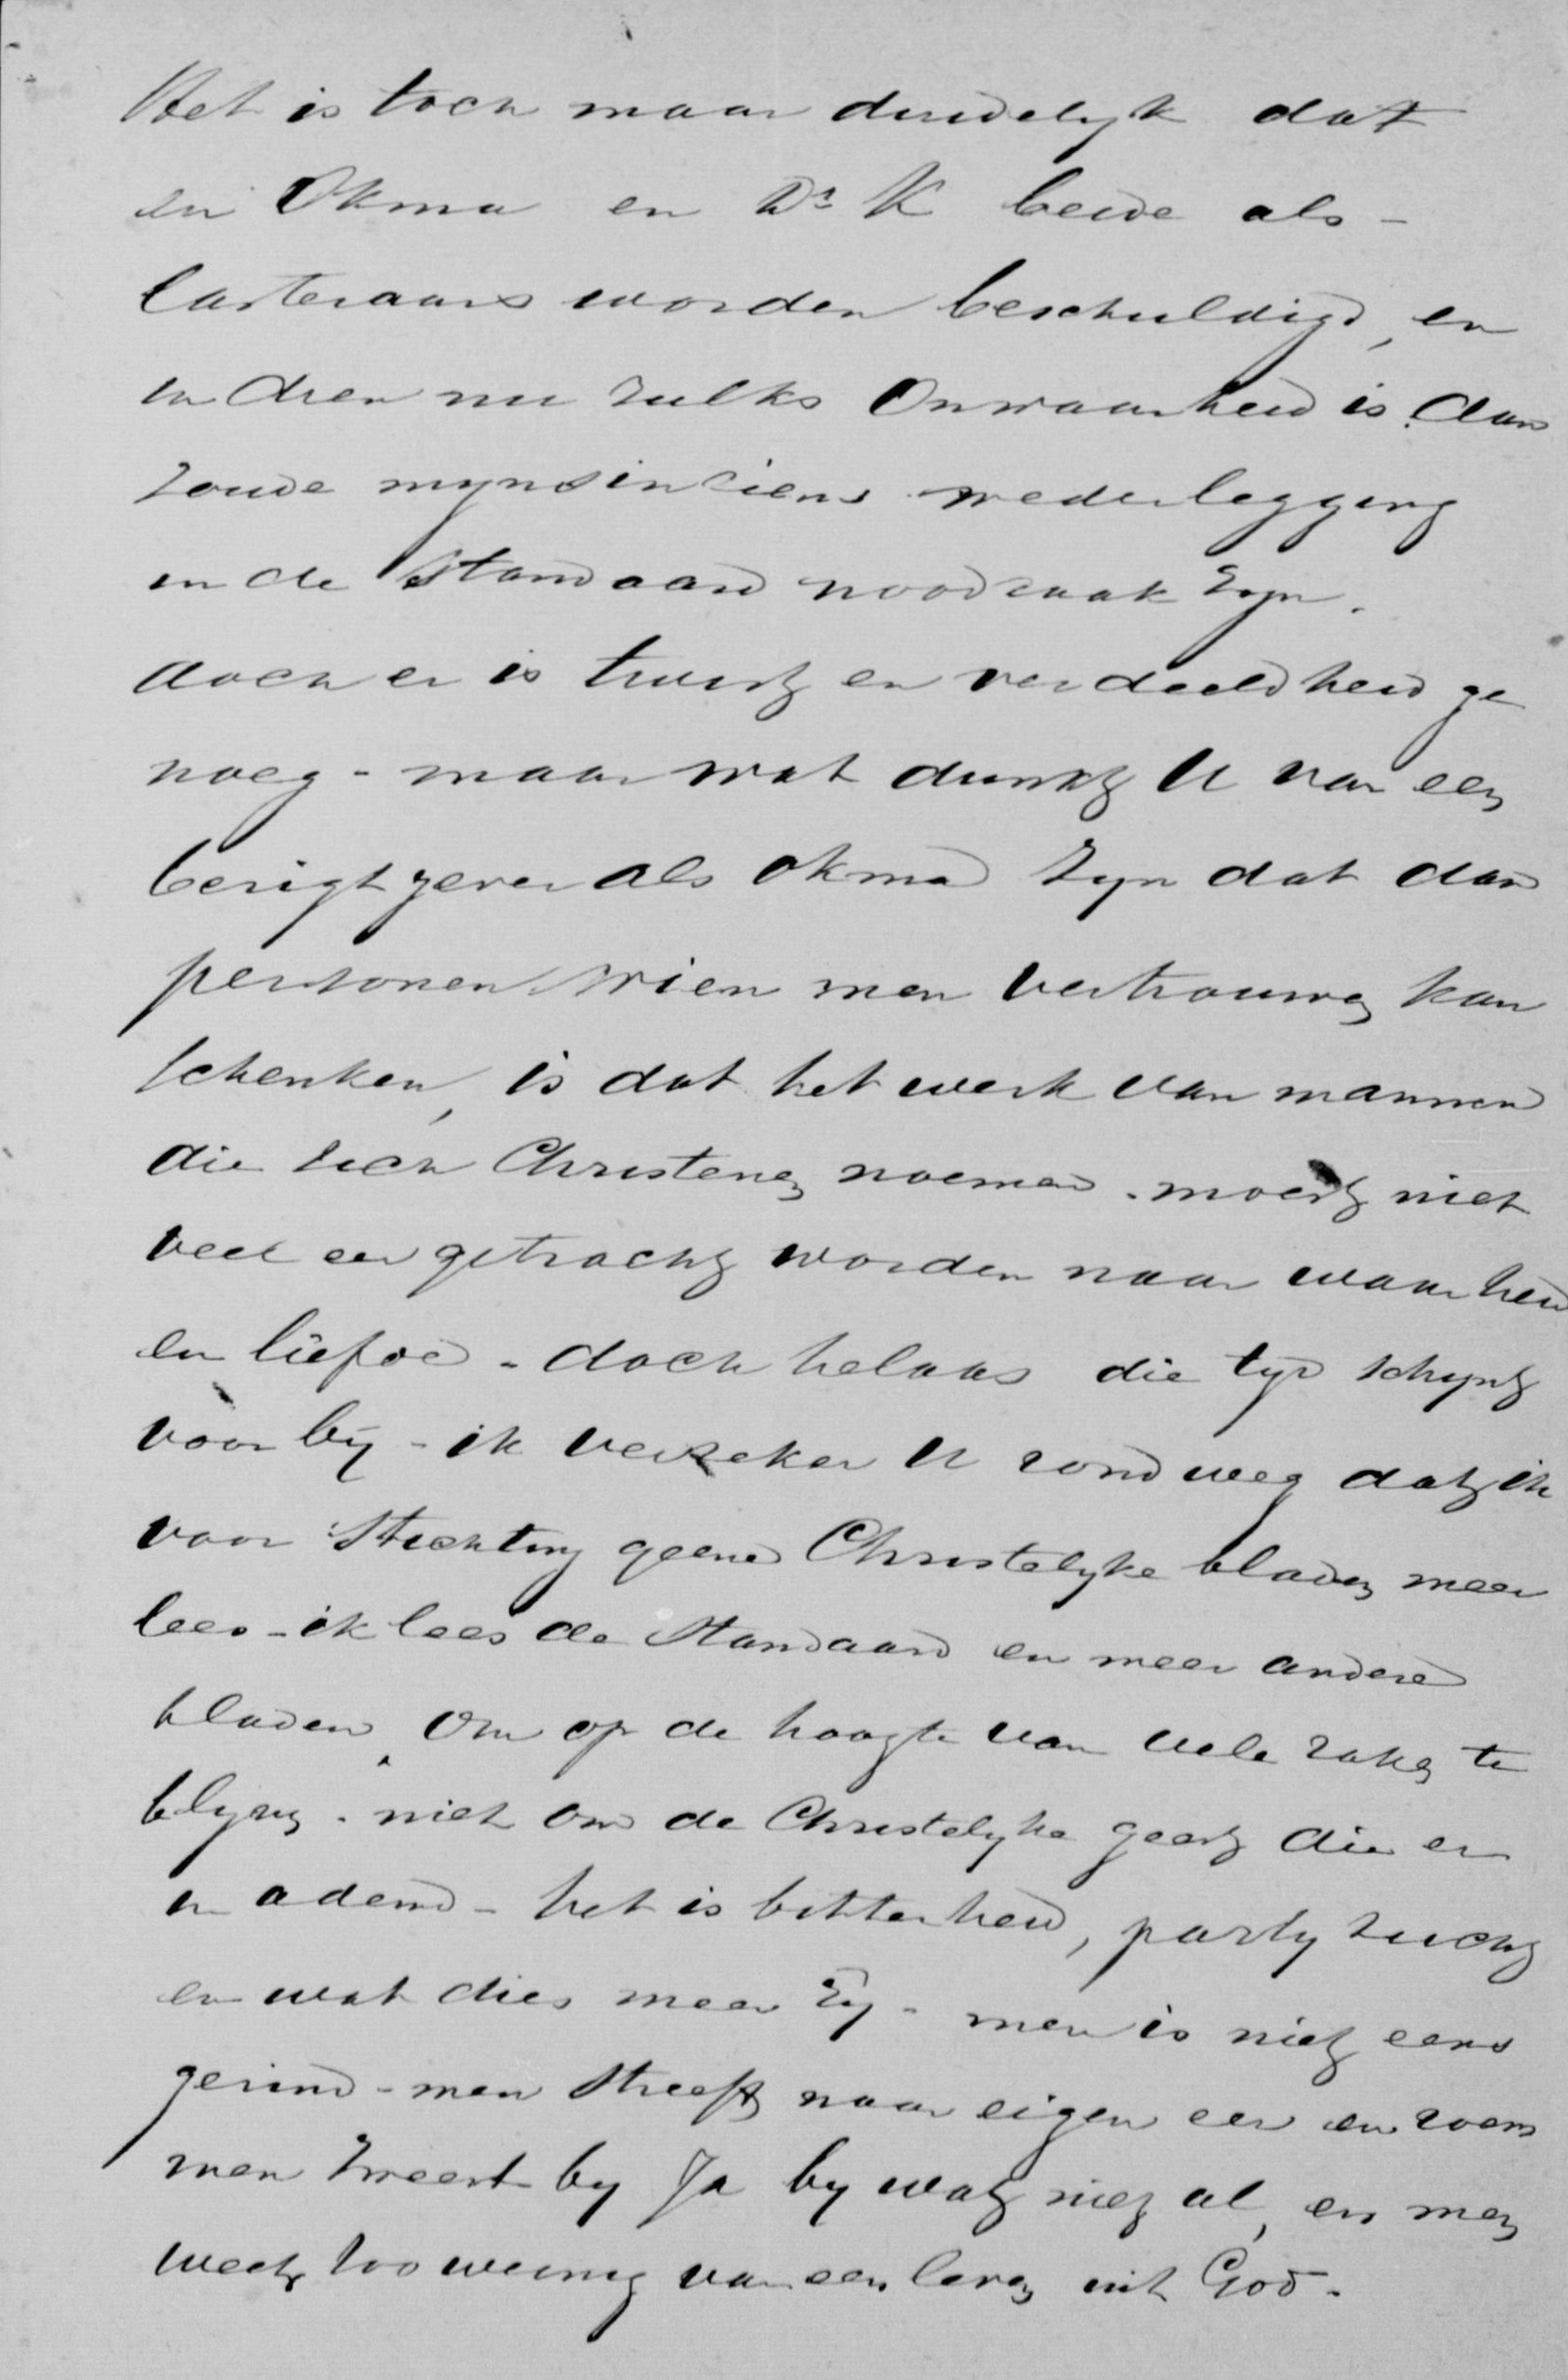 Het is toch maar duidelyk dat
en Okma en Dr K beide als -
lasteraars worden beschuldigd, en
in dien nu zulks Onwaarheid is. dan
zoude mynsinziens wederlegging
in de Standaard noodzaak zyn.
doch er is twist en verdeeldheid ge
noeg - maar wat dunkt U van een
berigtgever als Okma zyn dat dan
personen wien men vertrouwen kan
schenken, is dat het werk van mannen
die zich Christenen noemen. moest niet
veel eer getracht worden naar waarheid
en liefde - doch helaas die tyd schynt
voor by - ik verzeker U rondweg dat ik
voor Stichting geene Christelyke bladen meer
lees - ik lees de Standaard en meer andere
bladen, Om op de hoogte van vele zaken te
blyven. niet om de Christelyke geest die er
in ademd - het is bitterheid, partyzucht
en wat dies meer zy - men is niet eens
gezind - men streeft naar eigen eer en roem
men zweert by Ja by wat niet al, en men
weet zoo weinig van een leven uit God.